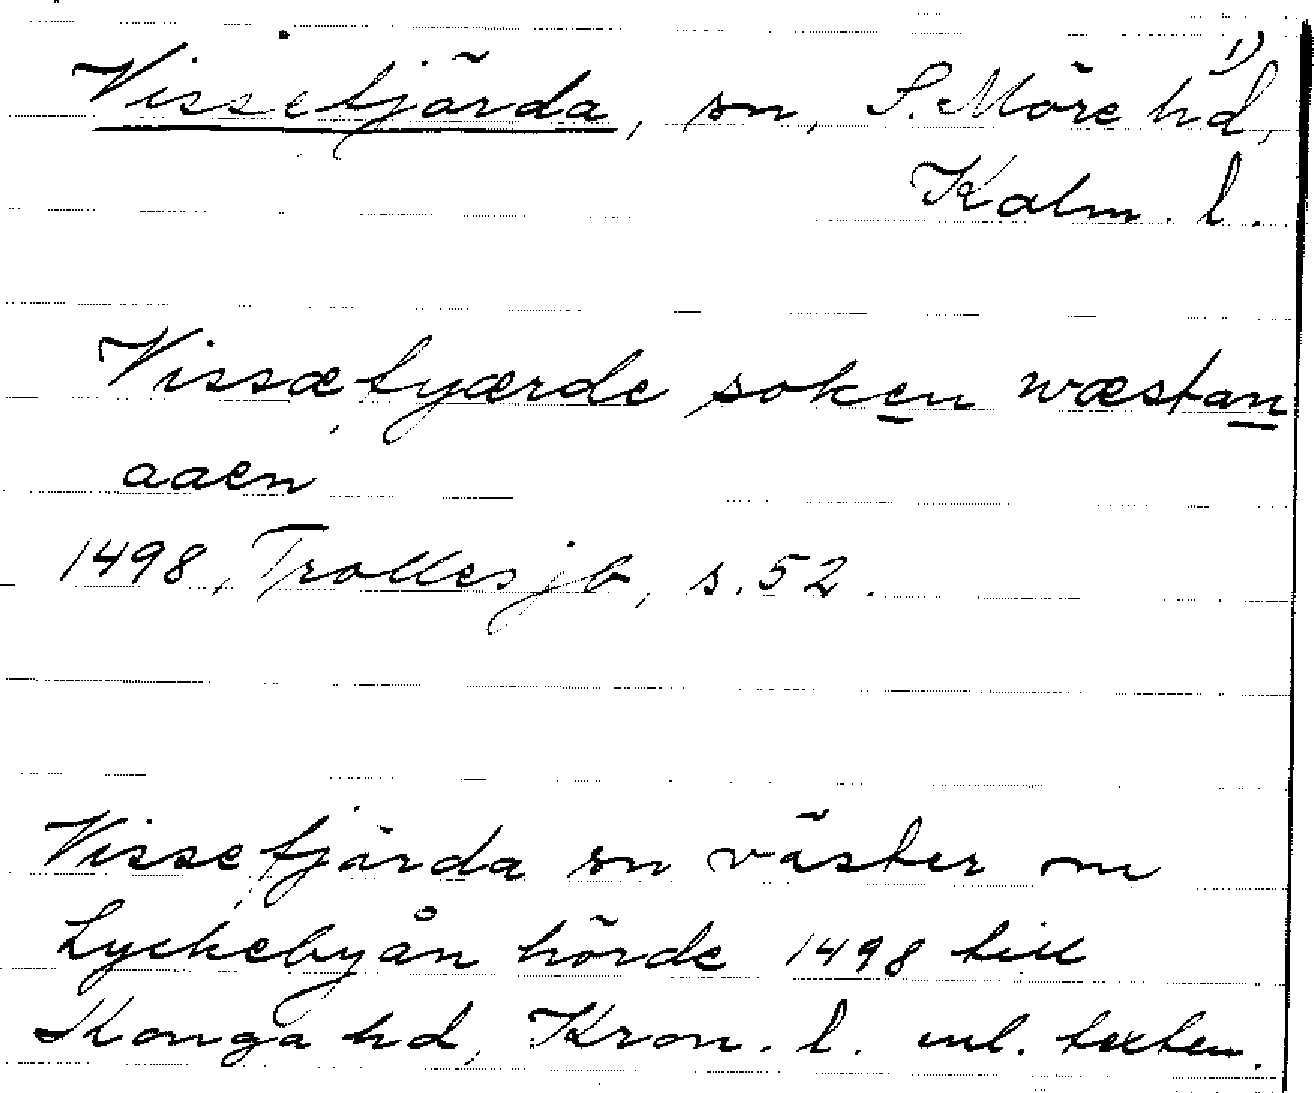 Vissefjärda, sn, S. Möre hd, 1)
Kalm. l.
Vissæfyærde soken wæstan
aaen
1498, Trolles jb, s. 52.
Vissefjärda sn väster om
Lyckebyån hörde 1498 till
Konga hd, Kron. l. enl. texten.